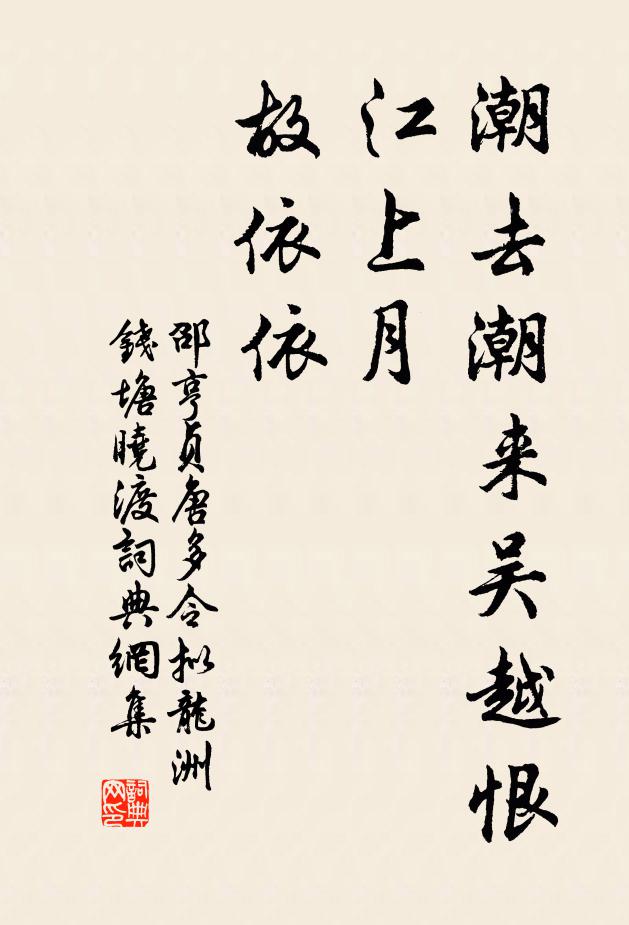 潮去潮来吴越恨
江上月
故依依
邵亨貞唐多令拟龍洲
錢塘曉渡詞典網集
詞典网印